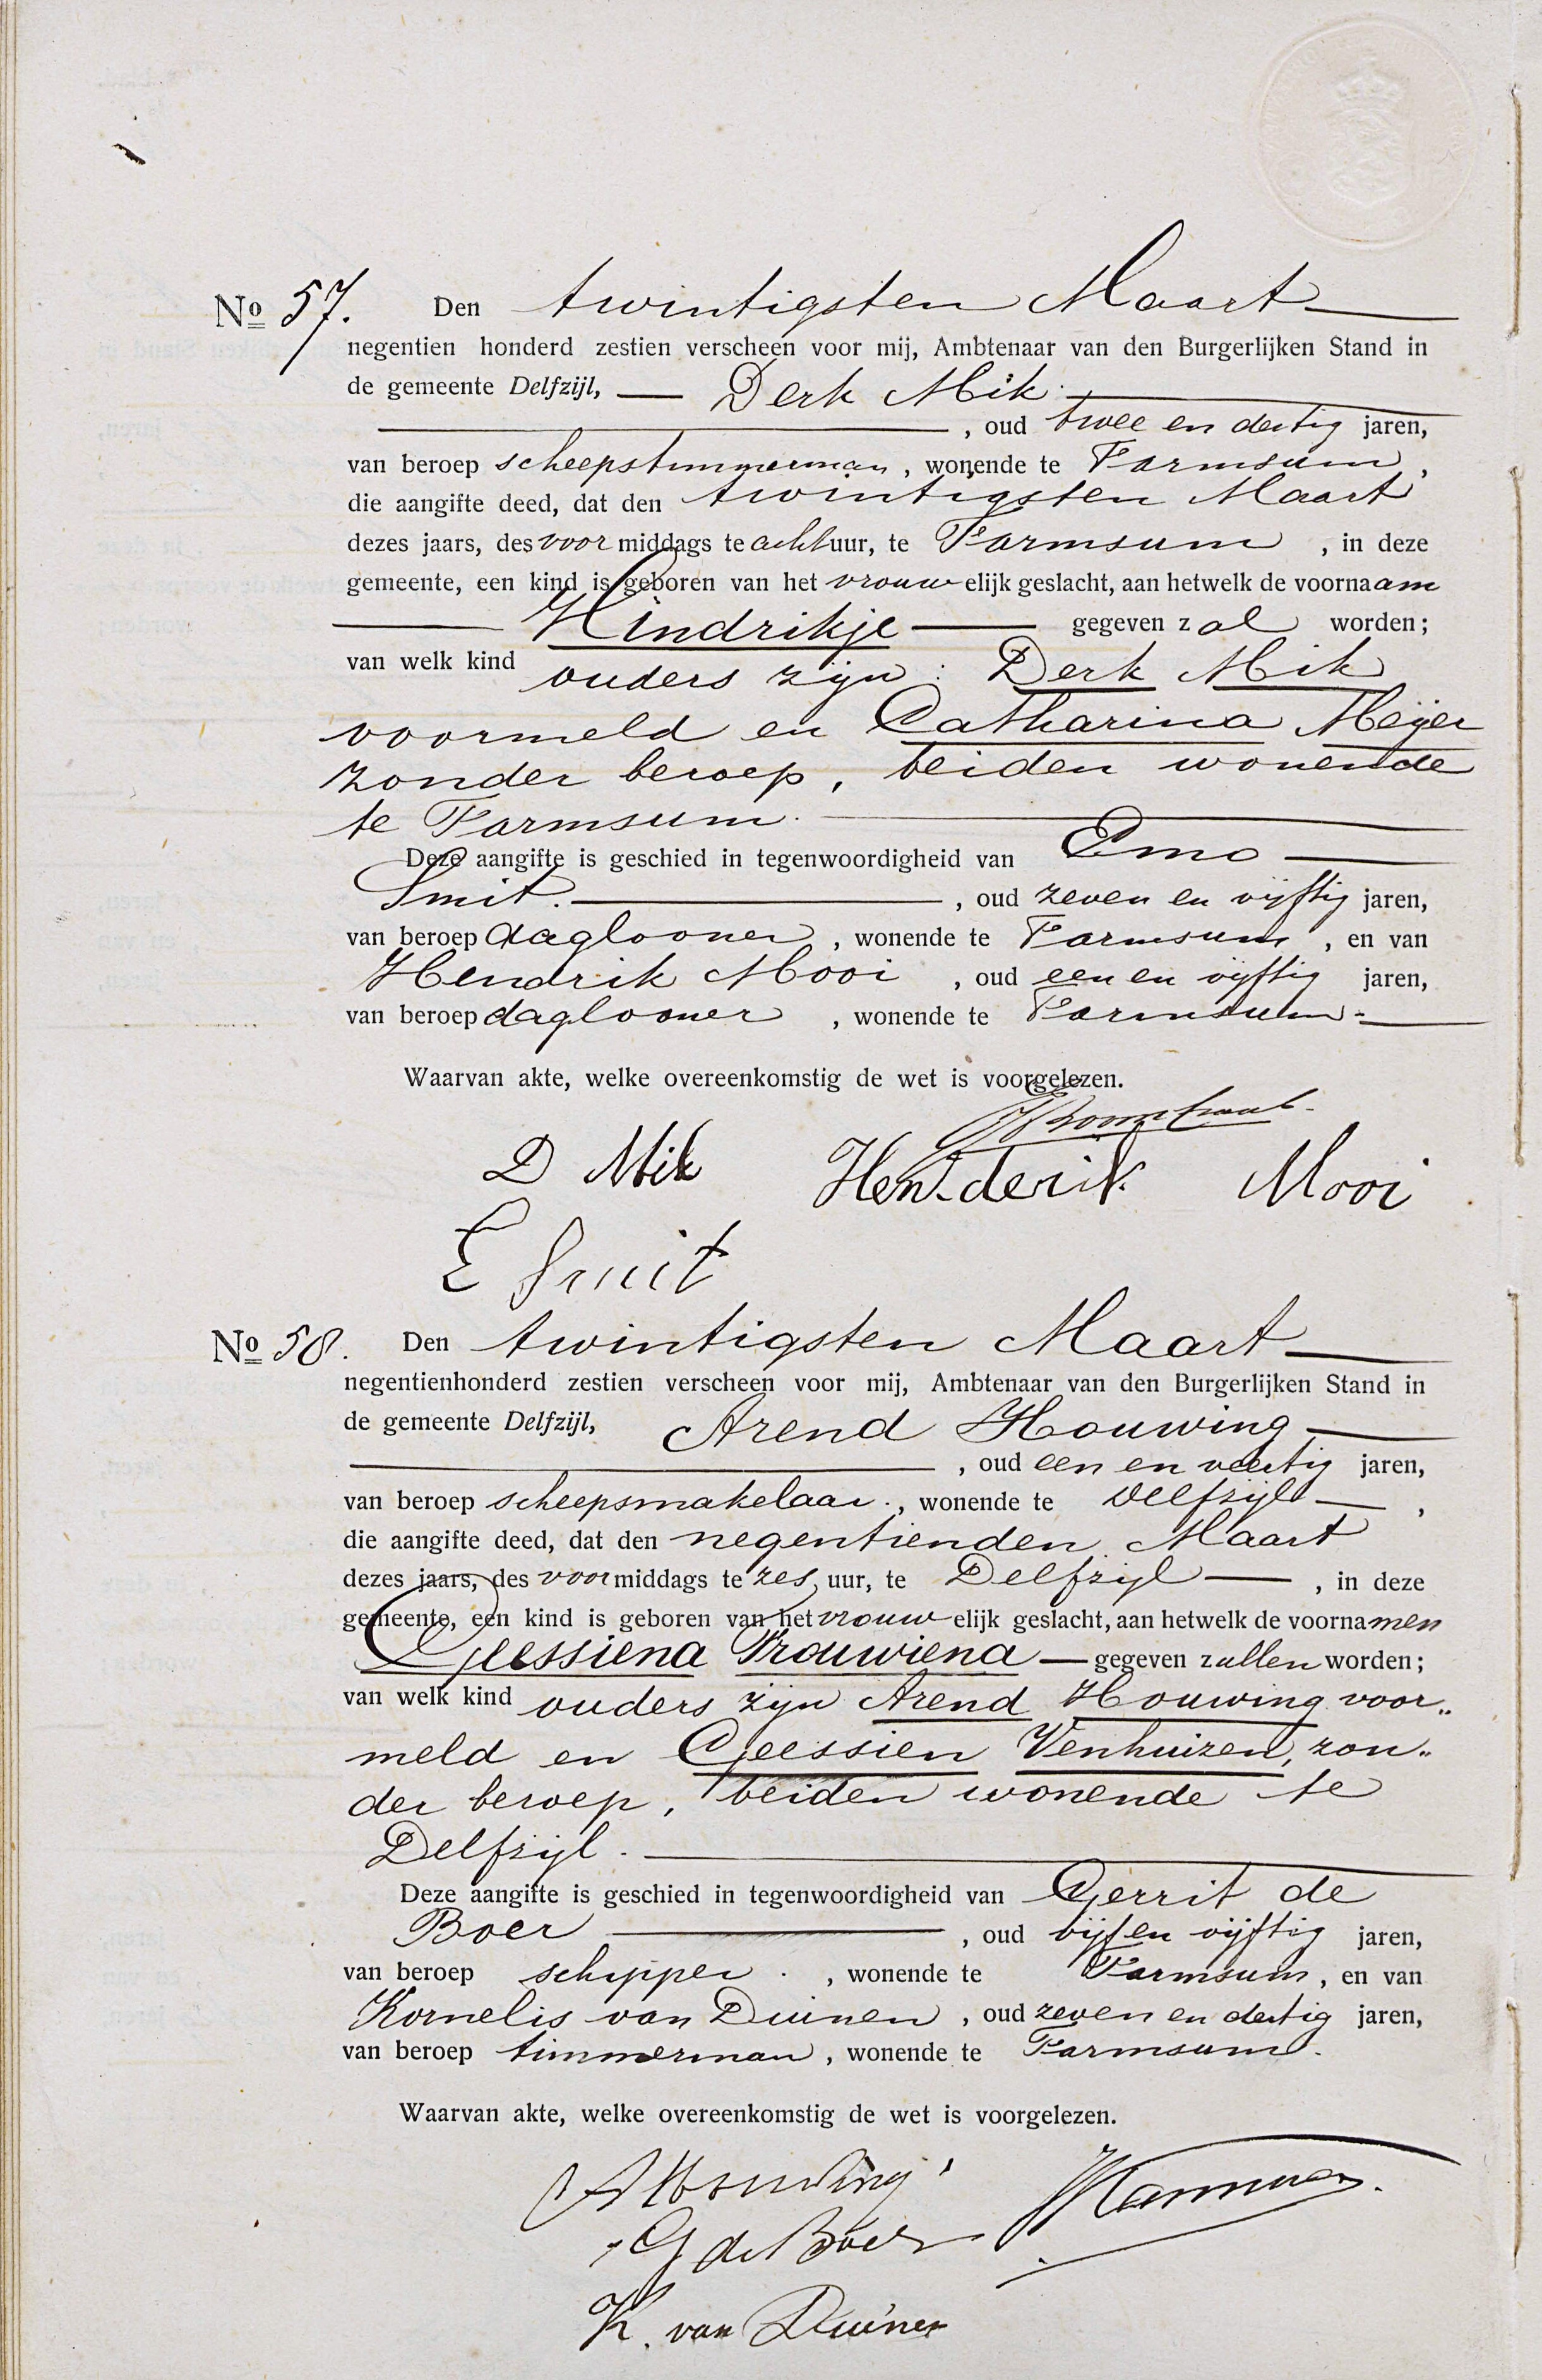 No 57. Den twintigsten Maart
negentien honderd zestien verscheen voor mij, Ambtenaar van den Burgerlijken Stand in
de gemeente Delfzijl, Derk Mik
, oud twee en dertig jaren,
van beroep scheepstimmerman, wonende te Farmsum,
die aangifte deed, dat den twintigsten Maart
dezes jaars, des voormiddags te acht uur, te Farmsum, in deze
gemeente, een kind is geboren van het vrouwelijk geslacht, aan hetwelk de voornaam
Hindrikje gegeven zal worden;
van welk kind ouders zijn: Derk Mik
voormeld en Catharina Meijer
zonder beroep, beiden wonende
te Farmsum.
Deze aangifte is geschied in tegenwoordigheid van Emo
Smit. , oud zeven en vijftig jaren,
van beroep daglooner, wonende te Farmsum, en van
Hendrik Mooi, oud een en vijftig jaren,
van beroep daglooner, wonende te Farmsum.
Waarvan akte, welke overeenkomstig de wet is voorgelezen.
D Mik Henderik Mooi
E Smit
No 58. Den twintigsten Maart
negentienhonderd zestien verscheen voor mij, Ambtenaar van den Burgerlijken Stand in
de gemeente Delfzijl, Arend Houwing
, oud een en veertig jaren,
van beroep scheepsmakelaar, wonende te Delfzijl,
die aangifte deed, dat den negentienden Maart
dezes jaars, des voormiddags te zes uur, te Delfzijl, in deze
gemeente, een kind is geboren van het vrouwelijk geslacht, aan hetwelk de voornamen
Geessiena Trouwiena gegeven zullen worden;
van welk kind ouders zijn Arend Houwing voor„
meld en Geessien Venhuizen, zon„
der beroep, beiden wonende te
Delfzijl.
Deze aangifte is geschied in tegenwoordigheid van Gerrit de
Boer, oud vijf en vijftig jaren,
van beroep schipper, wonende te Farmsum, en van
Kornelis van Duinen, oud zeven en dertig jaren,
van beroep timmerman, wonende te Farmsum.
Waarvan akte, welke overeenkomstig de wet is voorgelezen.
A Houwing
G de Boer
K. van Duinen